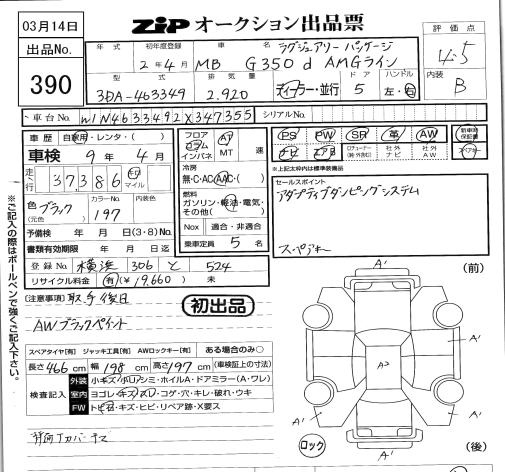 03月14日
ZIP オークション出品票
評価点
4.5
出品No.
390
年式
初年度登録
2年4月
車名
ラグジュアリーパッケージ
MB G350d AMGライン
内装
B
型式
3DA-463349
排気量
2.920
ディーラー・並行
ドア
5
ハンドル
左・右
車台No.
W1N4633492X347355
シリアルNo.
車歴 自家用・レンタ・( )
車検 9年4月
走行 37386 km マイル
色 ブラック
(元色)
カラーNo.
197
内装色
予備検 年 月 日(3・8)
書類有効期限 年 月 日迄
登録No. 横浜 306 と 524
リサイクル料金 有(¥19,660) 未
フロア
コラム
インパネ
AT
MT
速
冷房
無・C・AC・AAC・( )
燃料
ガソリン・軽油・電気・
その他( )
Nox 適合・非適合
乗車定員 5名
PS PW SR 革 AW
新車時保証書
ナビ エアB
社外ナビ
社外AW
※上記太枠内は標準装備品
セールスポイント
アダプティブダンピングシステム
スペアキー
※ご記入の際はボールペンで強くご記入下さい。
(注意事項) 取手後日
AWブラックペイント
初出品
スペアタイヤ[有] ジャッキ工具[有] AWロックキー[有] ある場合のみ○
長さ 466 cm 幅 198 cm 高さ 197 cm (車検証上の寸法)
検査記入
外装 小キズ・小凹・シミ・ホイルA・ドアミラー(A・ワレ)
室内 ヨゴレ・キズ・スレ・コゲ・穴・キレ・破れ・ウキ
FW トビ石・キズ・ヒビ・リペア跡・X要ス
(前)
A'
A'
A'
A'
A2
A'
A'
A'
ロック
(後)